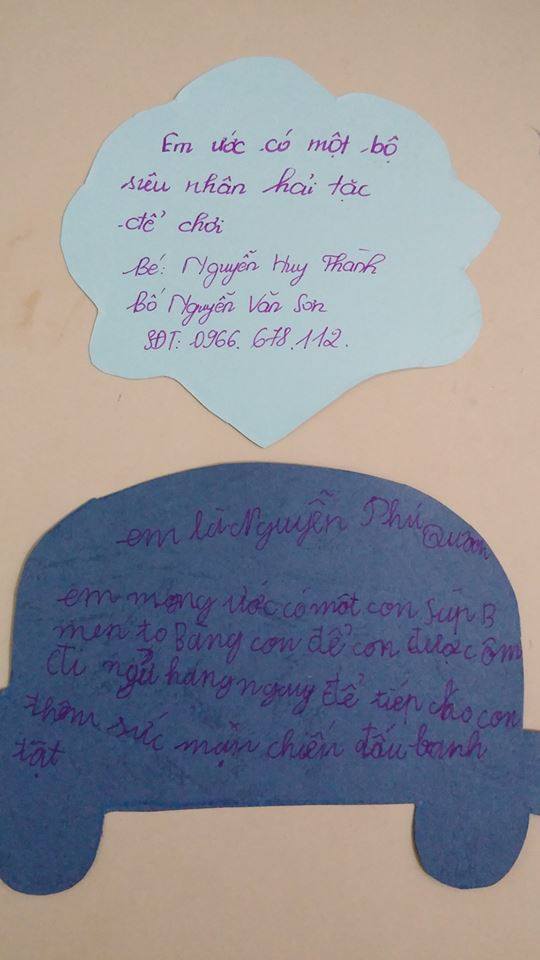 Em ước có một bộ
siêu nhân hải tặc
để chơi
Bé: Nguyễn Huy Thành
Bố Nguyễn Văn Sơn
SĐT: 0966.678.112.
em là Nguyễn Phú Quân
em mong ước có một con Súp B
men to Bang con để con được ôm
đi ngủ hàng ngay để tiếp cho con
thêm sức mạn chiến đấu banh
tật